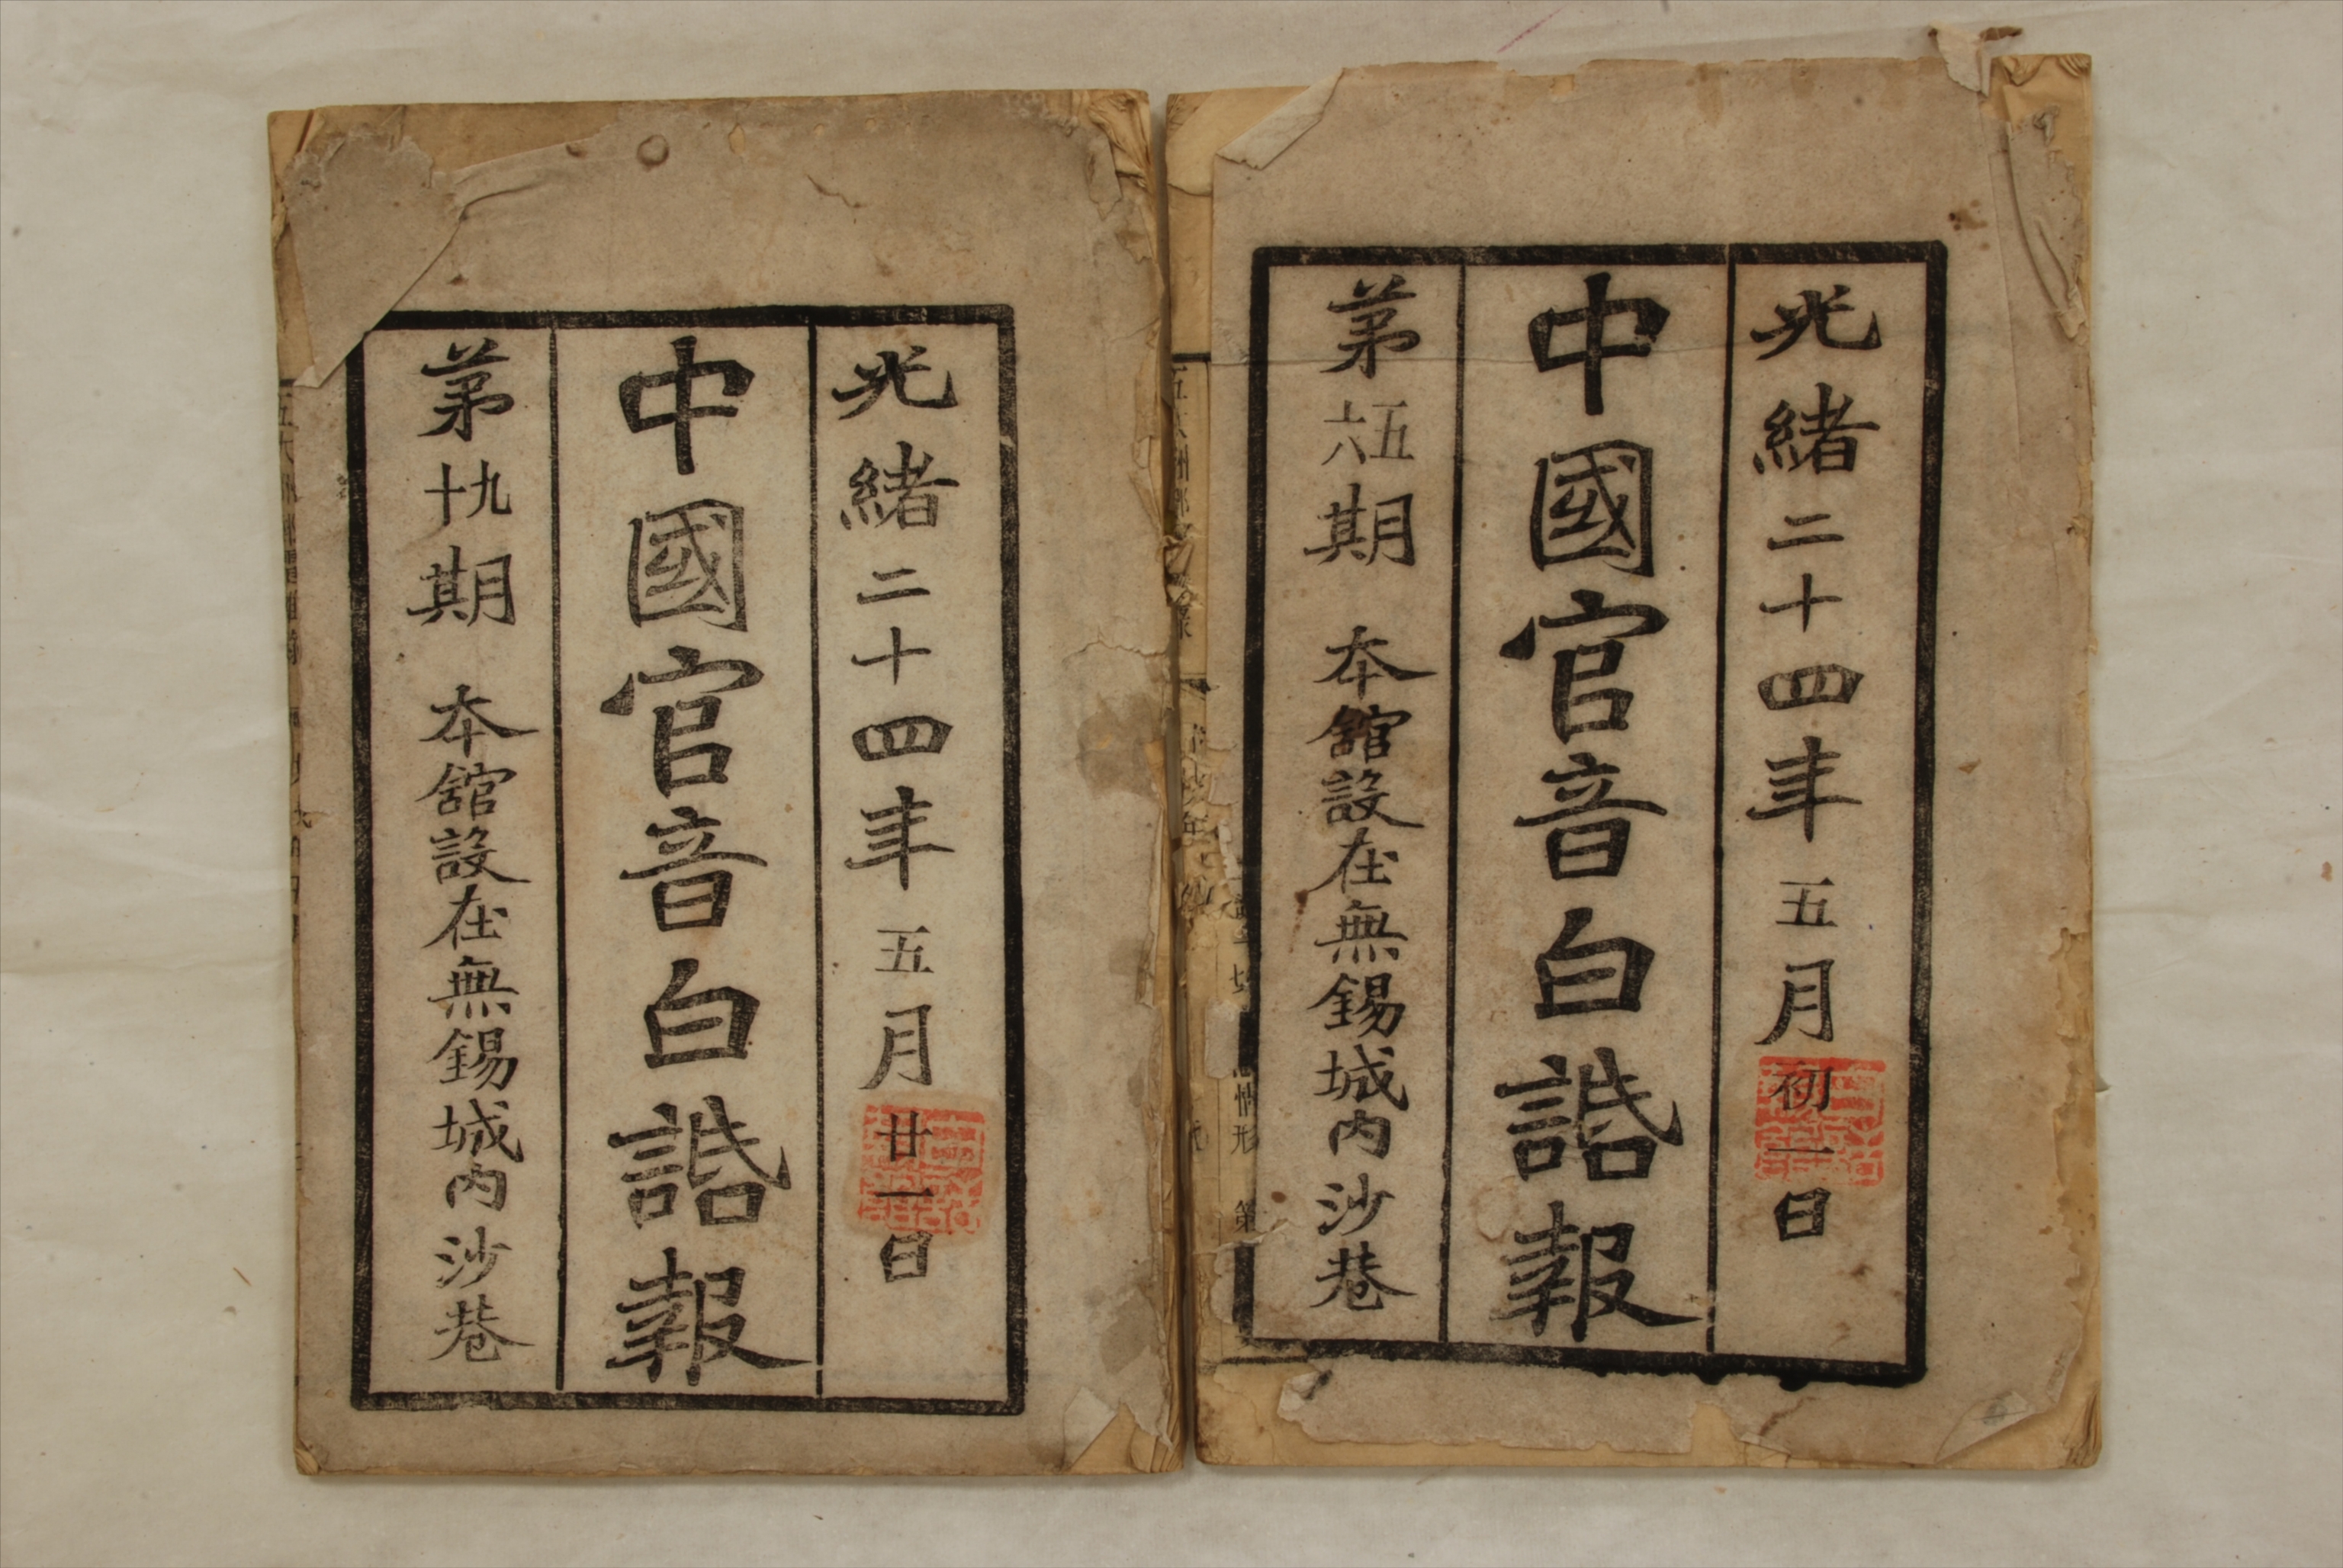 光緒二十四年五月初一日
中國官音白話報
第五六期 本館設在無錫城内沙巷
光緒二十四年五月廿一日
中國官音白話報
第九十期 本館設在無錫城内沙巷